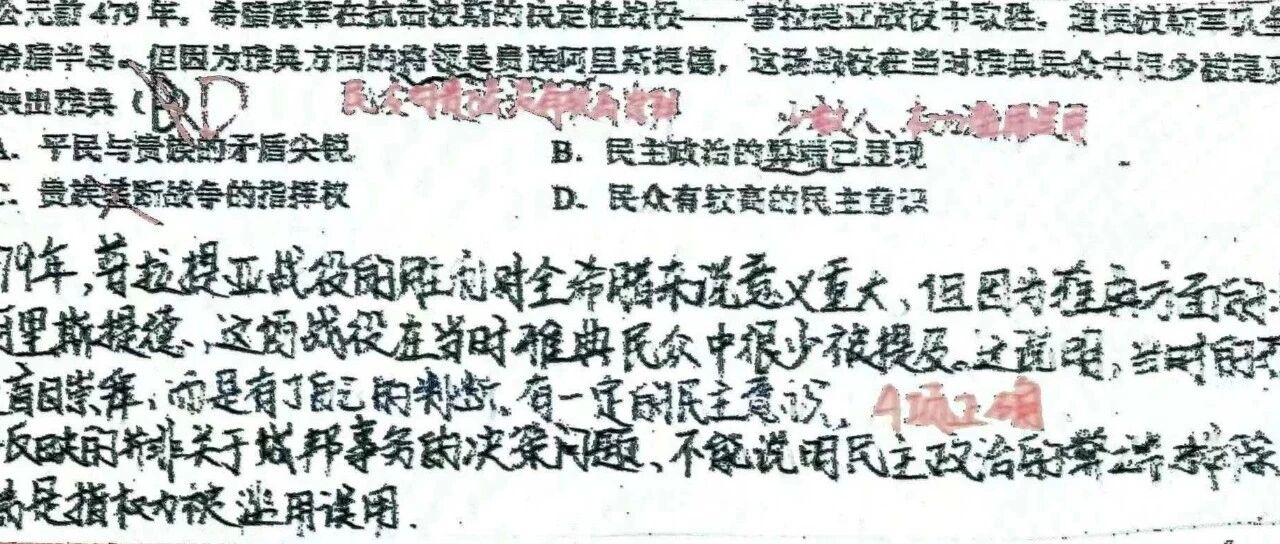 公元前479年，希腊联军在抗击波斯的决定性战役——普拉提亚战役中取胜，迫使波斯军队
希腊半岛。但因为雅典方面的将领是贵族阿里斯提德，这场战役在当时雅典民众中很少被提
映出雅典（ D
民众
少数人、权力 滥用误用
A. 平民与贵族的矛盾尖锐
B. 民主政治的弊端已显现
C. 贵族垄断战争的指挥权
D. 民众有较高的民主意识
79年，普拉提亚战役的胜利对全希腊来说意义重大，但因为雅典方面
阿里斯提德，这场战役在当时雅典民众中很少被提及。这说明，当时的
盲目崇拜，而是有了自己的判断，有一定的民主意识，
项正确
反映的并非关于城邦事务的决策问题，不能说明民主政治的弊端 排除
端是指权力被滥用误用.